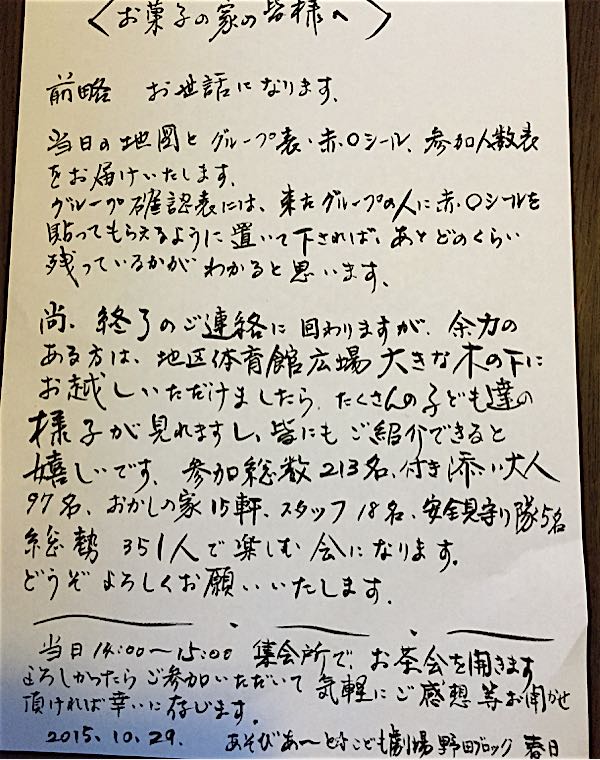 〈お菓子の家の皆様へ〉
前略 お世話になります。
当日の地図と グループ表・赤○シール、参加人数表
をお届けいたします。
グループ確認表には、来たグループの人に赤・○シールを
貼ってもらえるように置いて下されば、あとどのくらい
残っているかが わかると思います。
尚、終了のご連絡に回わりますが、余力の
ある方は、地区体育館広場 大きな木の下に
お越しいただけましたら、たくさんの子ども達の
様子が見れますし、皆にもご紹介できると
嬉しいです。参加総数213名、付き添い大人
97名、おかしの家15軒、スタッフ18名、安全見守り隊5名
総勢 351人で楽しむ会になります。
どうぞ よろしくお願いいたします。
当日14:00〜15:00 集会所で、お茶会を開きます
よろしかったらご参加いただいて 気軽にご感想等お聞かせ
頂ければ幸いに存じます。
2015.10.29. あそびあ〜と こども劇場 野田ブロック 春日